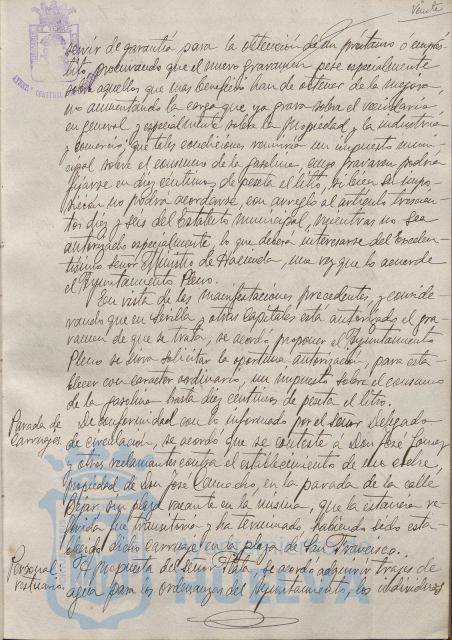 Veinte
servir de garantía para la obtención de un préstamo ó emprés-
tito, procurando que el nuevo gravamen pese especialmente
sobre aquellos que mas beneficio han de obtener de la mejora,
no aumentando la carga que ya grava sobre el vecindario
en general y especialmente sobre la propiedad y la industria
y comercio, que tales condiciones reuniría un impuesto muni-
cipal sobre el consumo de la gasolina, cuyo gravamen podría
fijarse en diez centimos de peseta el litro, si bien su impo-
sición no podrá acordarse, con arreglo al artículo trescien-
tos diez y seis del Estatuto municipal, mientras no sea
autorizado especialmente, lo que debera interesarse del Excelen-
tisimo Señor Ministro de Hacienda, una vez que lo acuerde
el Ayuntamiento Pleno.
En vista de las manifestaciones precedentes, y conside-
rando que en Sevilla y otras capitales está autorizado el gra-
vamen de que se trata, se acordó proponer al Ayuntamiento
Pleno se sirva solicitar la oportuna autorización, para esta-
blecer con caracter ordinario, un impuesto sobre el consumo
de la gasolina hasta diez centimos de peseta el litro.
Parada de
carruajes
De conformidad con lo informado por el Señor Delegado
de circulación, se acordó que se conteste á Don José
y otros reclamantes contra el establecimiento de un coche,
propiedad de Don José Camacho, en la parada de la calle
Béjar, sin plaza vacante en la misma, que la estancia re-
ferida fue transitoria y ha terminado, habiendo sido esta-
blecido dicho carruaje en la plaza de San Francisco.
Personal:
vestuario.
A propuesta del Señor Plata, se acordó adquirir trajes de
agua para los ordenanzas del Ayuntamiento, los individuos
Ayuntamiento de
HUELVA